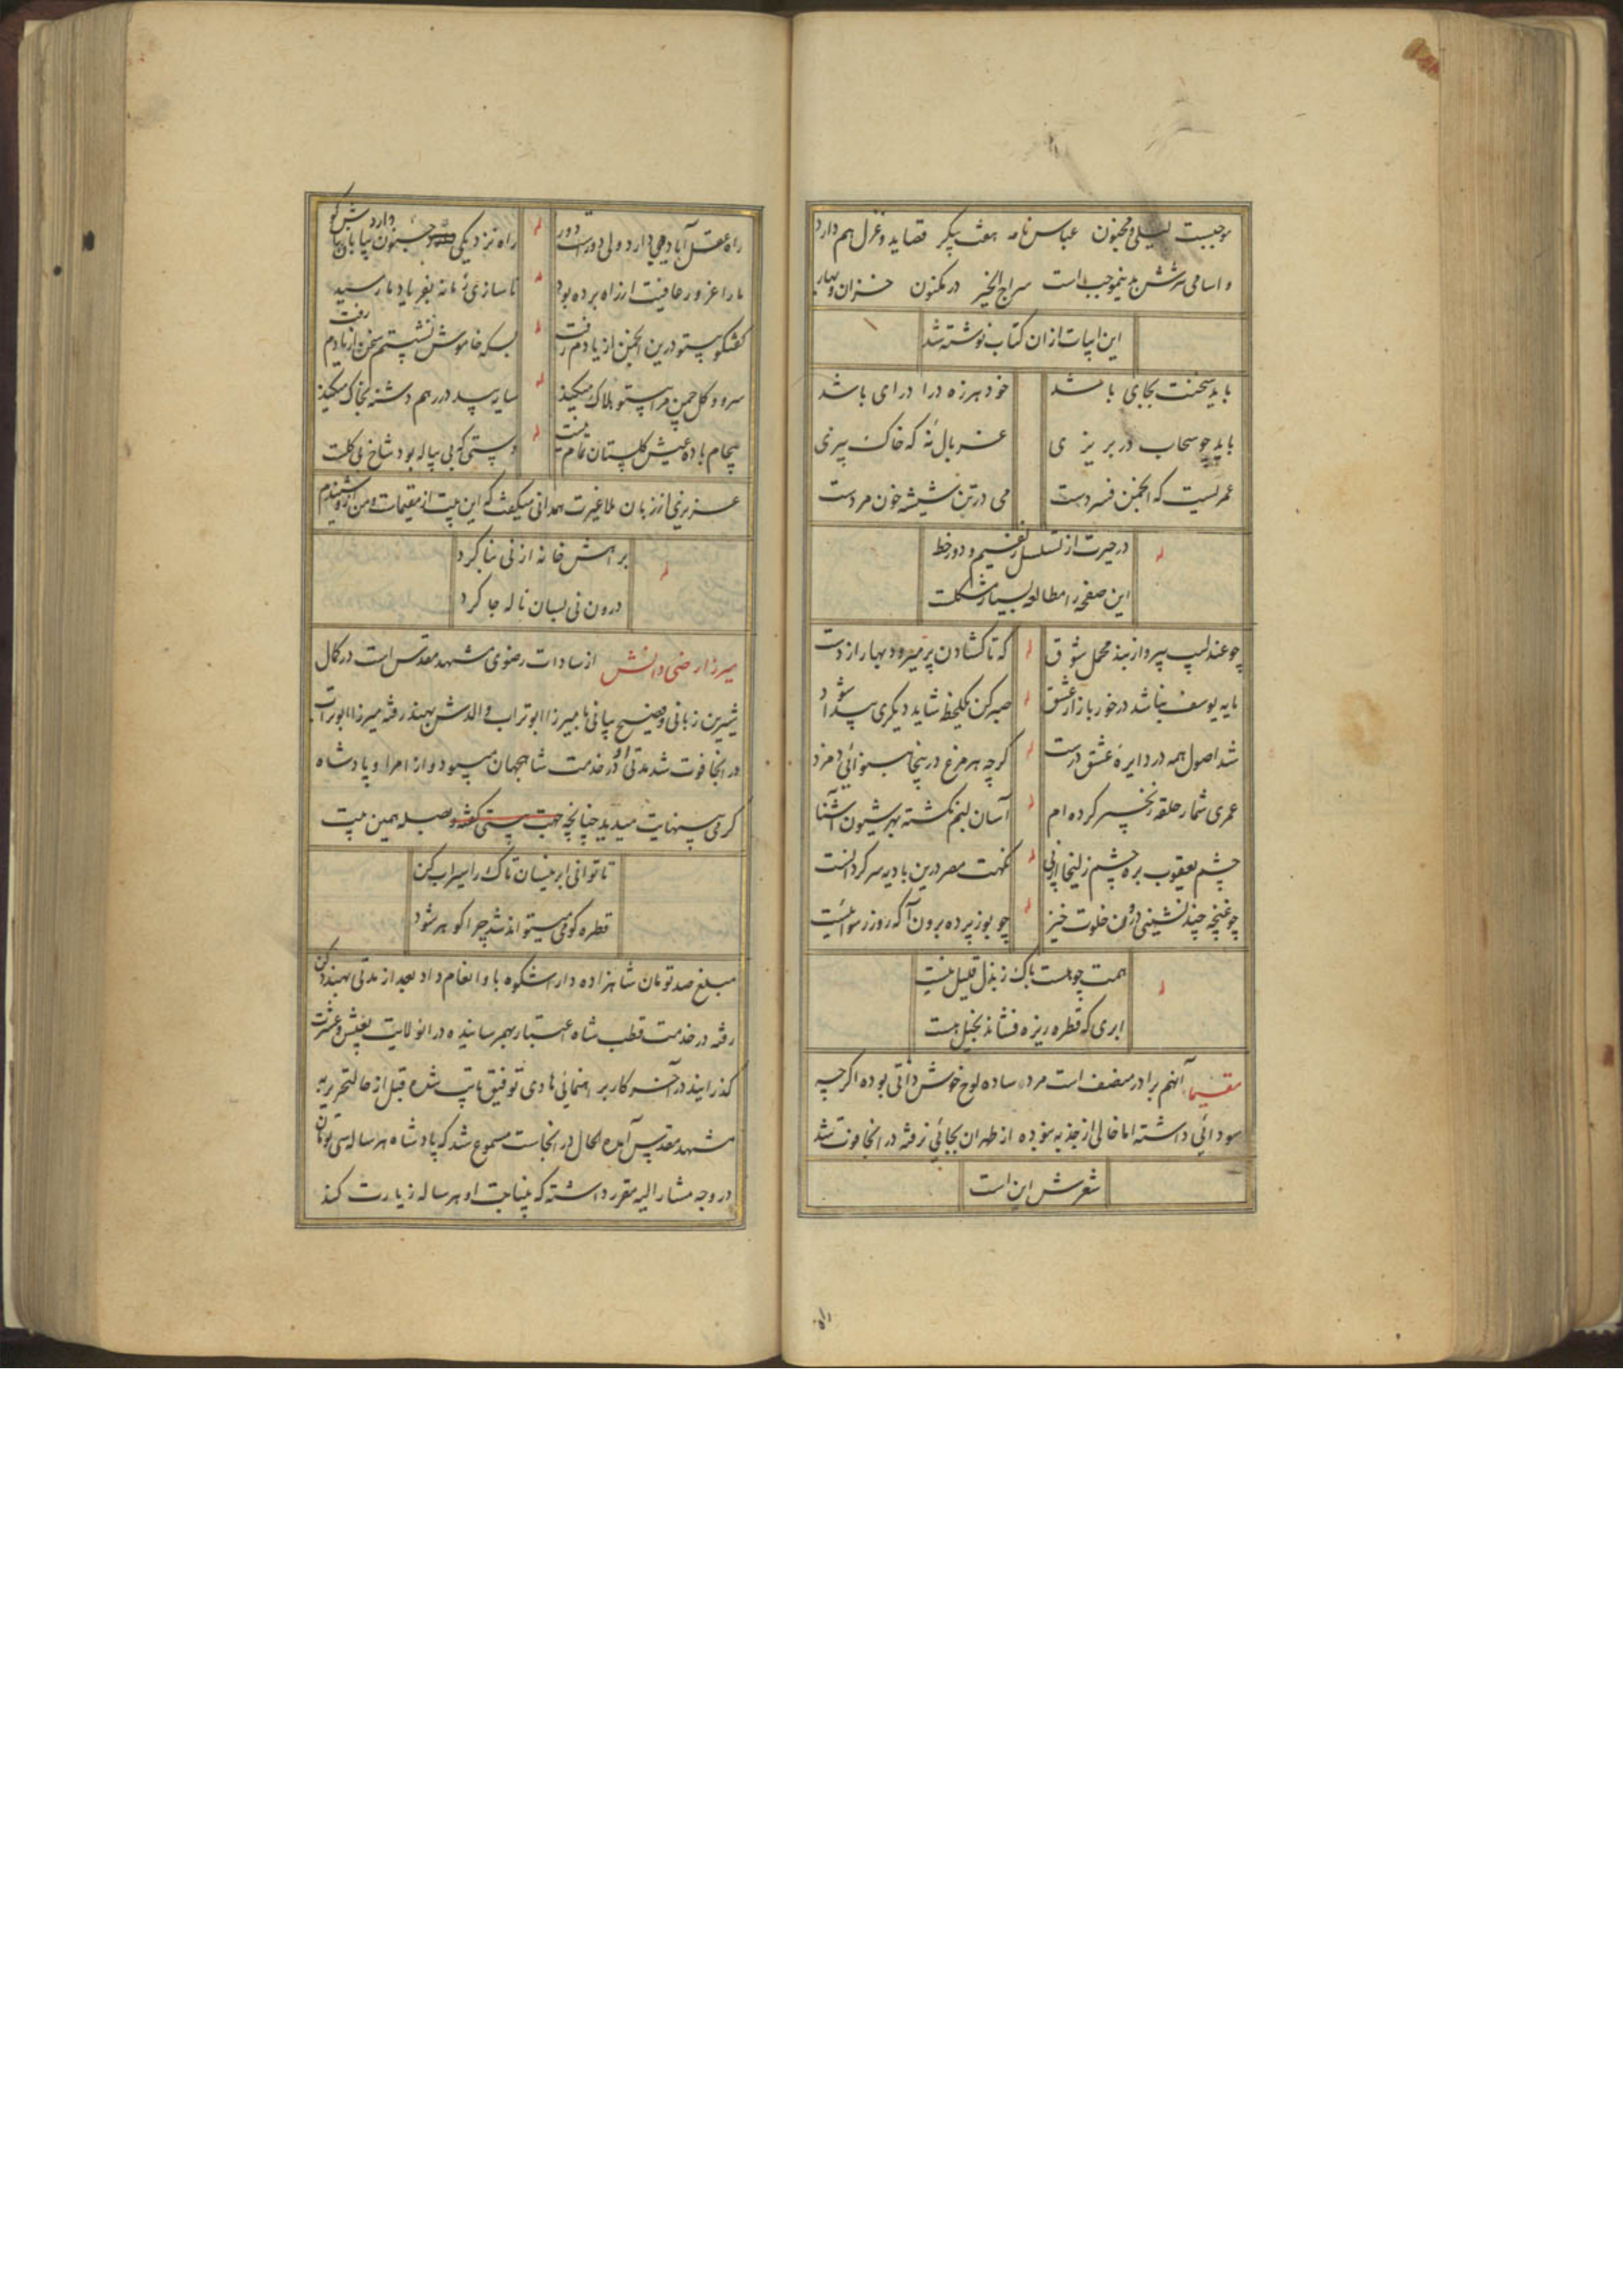 موجبیست لیلی و مجنون عباس نامه هفت پیکر قصاید و غزل هم دارد
و اسامی نثرش بدینموجب است سراج الخیر در مکنون خزان و بهار
این ابیات از ان کتاب نوشته شد
باید سخنت بجای باشد خود هرزه درا درای باشد
باید چو سحاب در بریزی غربال نه که خاک بیزی
عمریست که انجمن فسردست می در تن شیشه خون مردست
له
در حیرت از تسلسل زلفیم و دور خط
این صفحه را مطالعه بسیار مشکلست
چو عندلیب بپرواز بند محمل شوق له که تا کشادن پر میرود بهار از دست
مایه یوسف نباشد در خور بازار عشق له صبر کن یکلحظه شاید دیکری پیدا شود
شد اصول همه در دایره عشق درست له کرچه هر مرغ درینجا بنوائی دم زد
عمری شمار حلقه زنجیر کرده ام له آسان لبم نکشته بهر شیون آشنا
چشم یعقوب بره چشم زلیخا از پی له نکهت مصر درین بادیه سرکردانست
چو غنچه چند نشینی درون خلوت خیز له چو بو ز پرده برون آ که روز رسوائیست
له
همت چو هست باک ز بذل قلیل نیست
ابری که قطره ریزه فشاند بخیل نیست
مقیما آنهم برادر مصنف است مرد ساده لوح خوش ذاتی بوده اکرچه
سودائی داشته اما خالی از جذبه نبوده از طهران بجائی نرفته در انجا فوت شد
شعرش این است
راه
راه عقل آبادیهی دارد ولی دورست دور له راه نزدیکی جنون بیابان دارد
ما را غرور عافیت از راه برده بود له ناسازی زمانه بفریاد ما رسید
کفتکو بیتو درین انجمن از یادم رفت له بسکه خاموش نشستم سخن از یادم رفت
سرو و کل چمن مرا بیتو هلاک میکند له سایه بید در رهم دشنه بخاک میکند
بیجام باده عیش کلستان تمام نیست له دستی که بی پیاله بود شاخ بی کلست
عزیزی از زبان ملا غیرت همدانی میکفت که این بیت از مقیماست و من از او شنیدم
له
براهش خانه از نی بنا کرد
درون نی بسان ناله جا کرد
میرزا رضی دانش از سادات رضوی مشهد مقدس است در کمال
شیرین زبانی و فصیح بیانی با میرزا ابو تراب والدش بهند رفته میرزا ابو تراب
در انجا فوت شد مدتی او در خدمت شاهجهان میبود و از امرا و پادشاه
کرمی بینهایت میدید چنانچه بصله همین بیت
تا توانی ابر نیسان تاک را سیراب کن
قطره کو می میتواند شد چرا کوهر شود
مبلغ صد تومان شاهزاده دارا شکوه باو انعام داد بعد از مدتی بهند دکن
رفته در خدمت قطب شاه اعتبار بهم رسانیده در انولایت بعیش و عشرت
کذرانید در آخر کار برهنمائی هادی توفیق تایب شده قبل از حالتحریر به
مشهد مقدس آمده الحال در انجاست مسموع شد که پادشاه هر ساله سی تومان
در وجه مشار الیه مقرر داشته که بنیابت او هر ساله زیارت کند